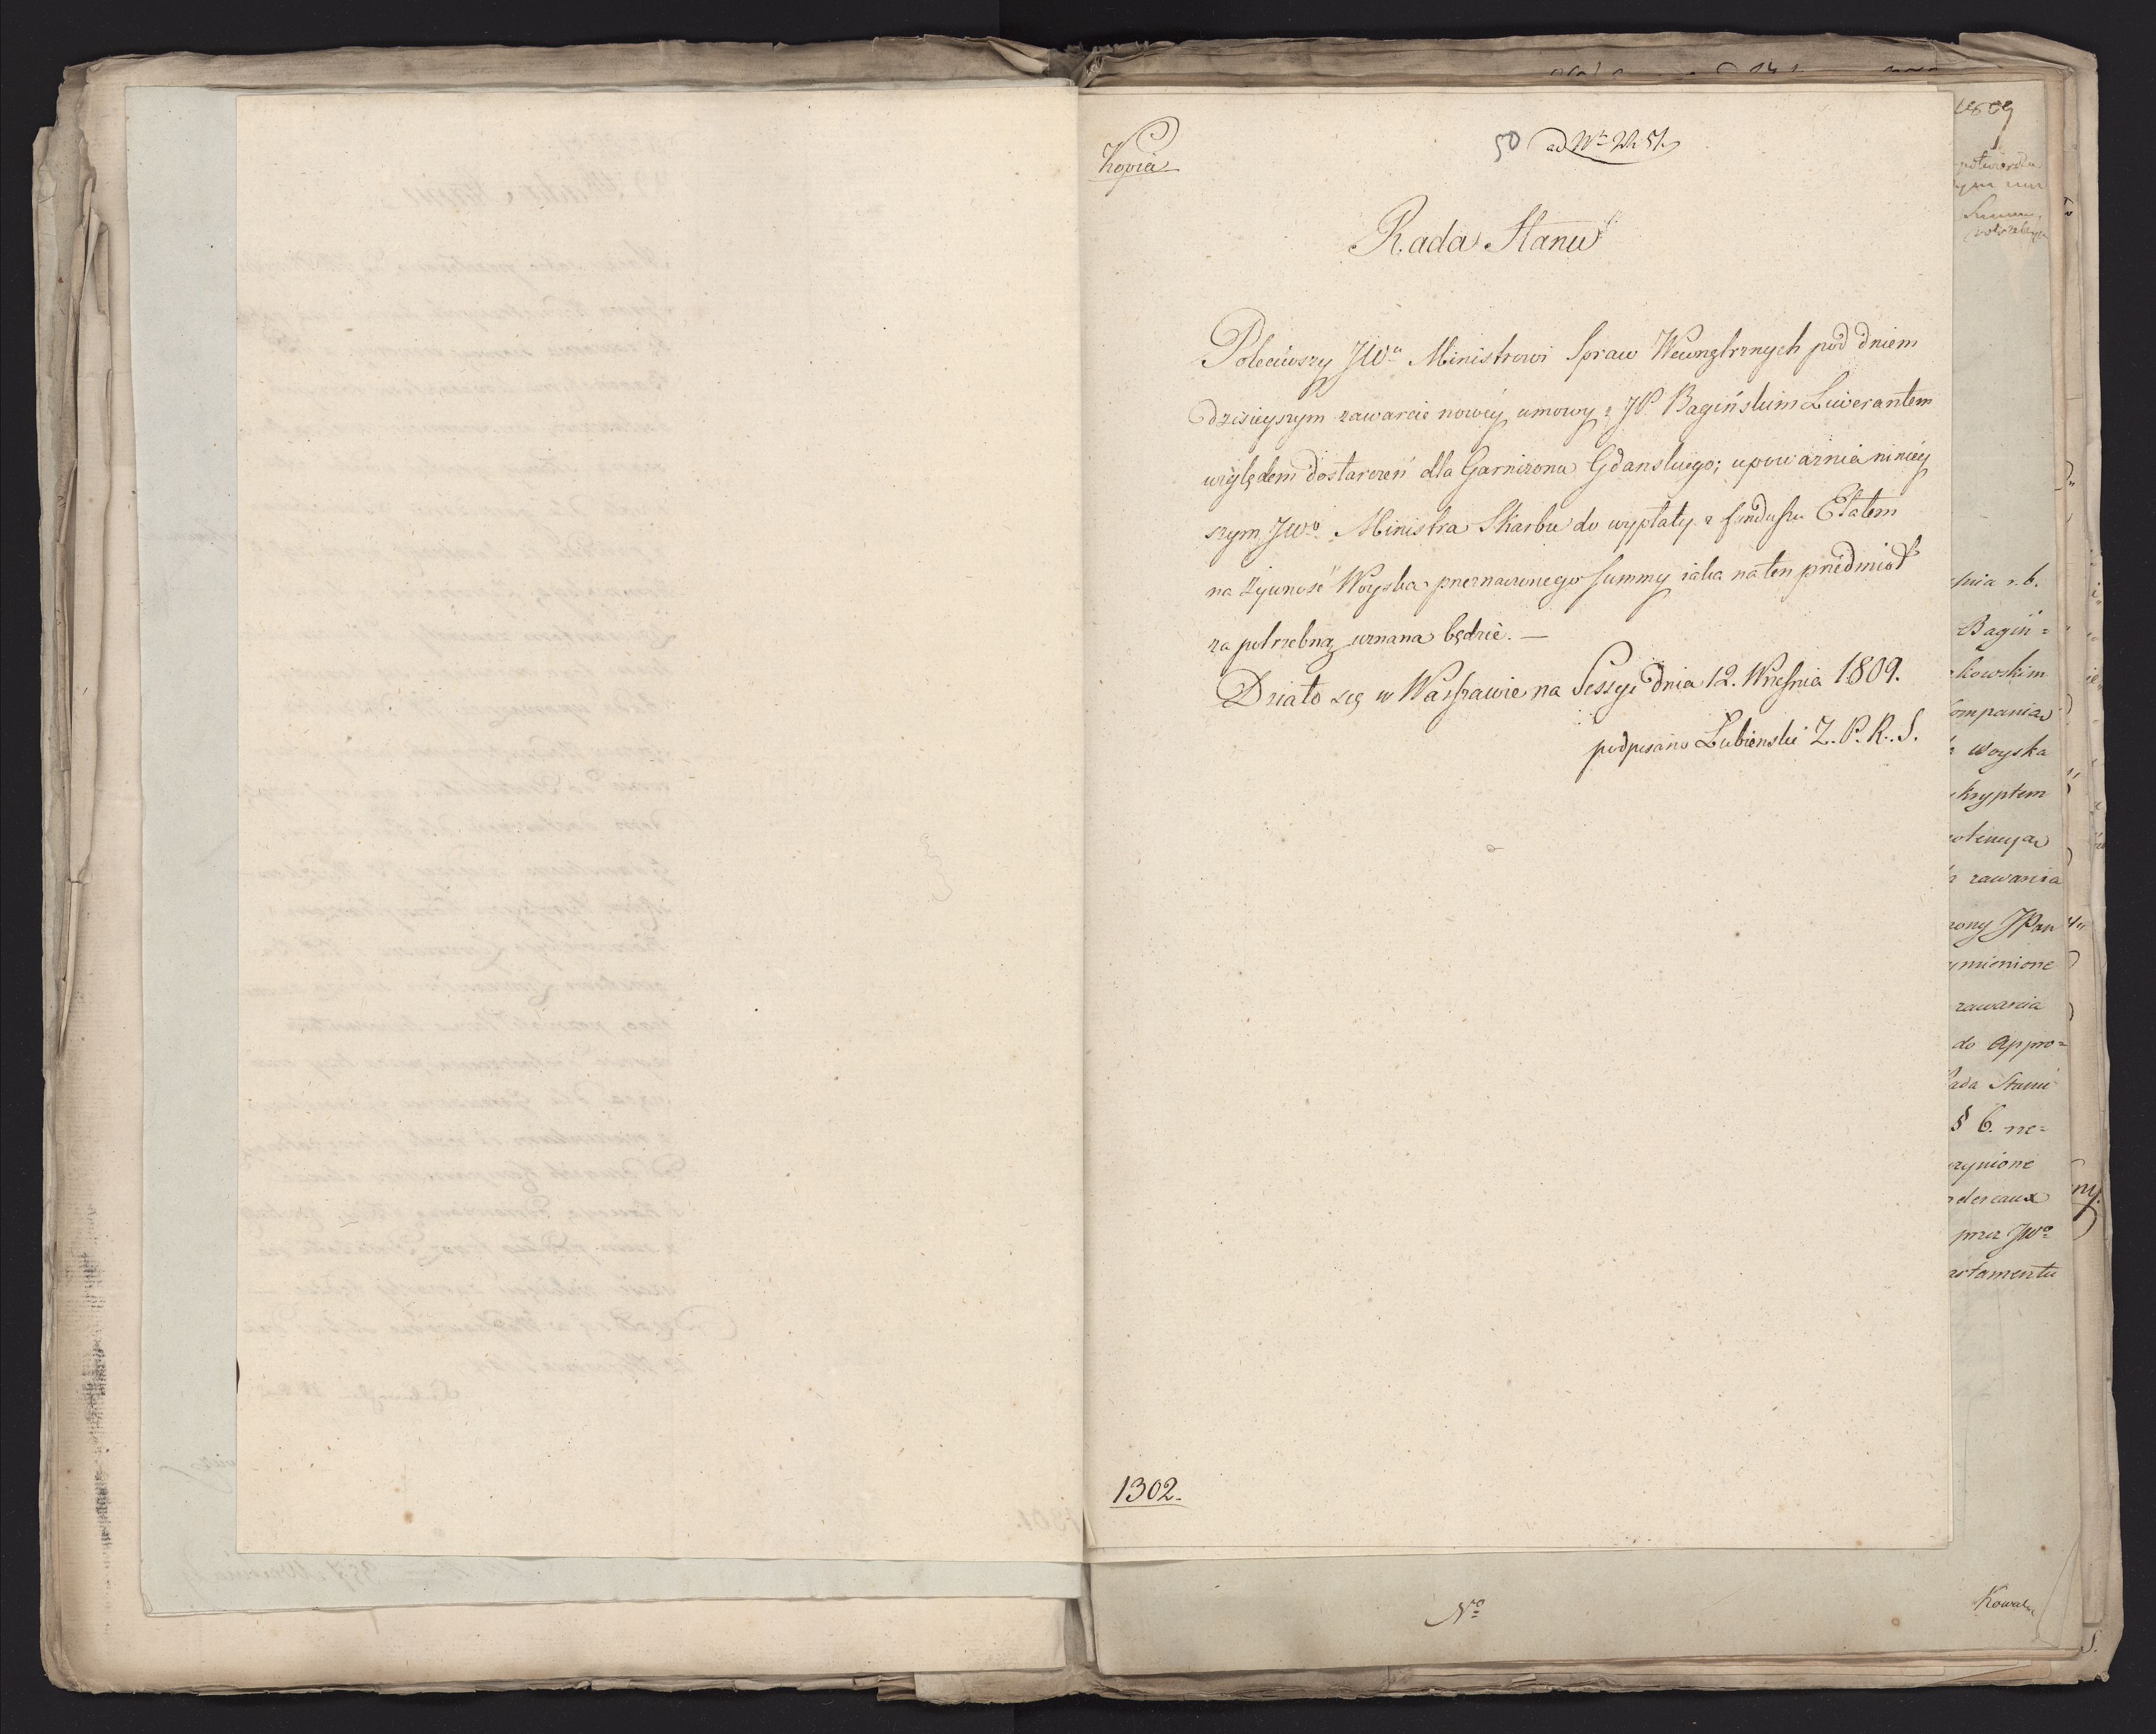 Kopia
50 ad Nr 2251.
Rada Stanu
Poleciwszy JWu Ministrowi Spraw Wewnętrznych pod dniem
dzisieyszym zawarcie nowéy umowy z JP. Bagińskim Liwerantem
względem dostarczeń dla Garnizonu Gdanskiego; upoważnia niniey
szym JWo Ministra Skarbu do wypłaty z funduszu Etatem
na żywność Woyska przeznaczonego summy iaka na ten przedmiot
za potrzebną uznana będzie. —
Działo się w Warszawie na Sessyi dnia 12. Września 1809.
podpisano Łubienski Z. P. R. S.
1302.
No
1809
pnia r. b.
Bagiń=
kowskim
ompania
woyska
kryptem
zawarcia
JPan
mienione
zawarcia
do Appro=
ada Stanu
§ 6. ne=
czynione
dereaux
przez JWo
artamentu
Kowal